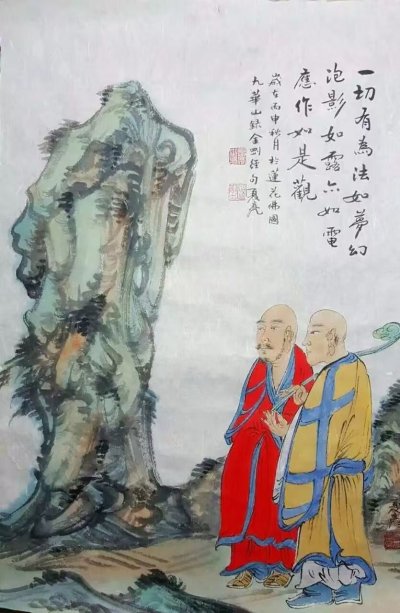 一切有為法如夢幻
泡影如露亦如電
應作如是觀
歲在丙申秋月於蓮花佛國
九華山錄金剛經句